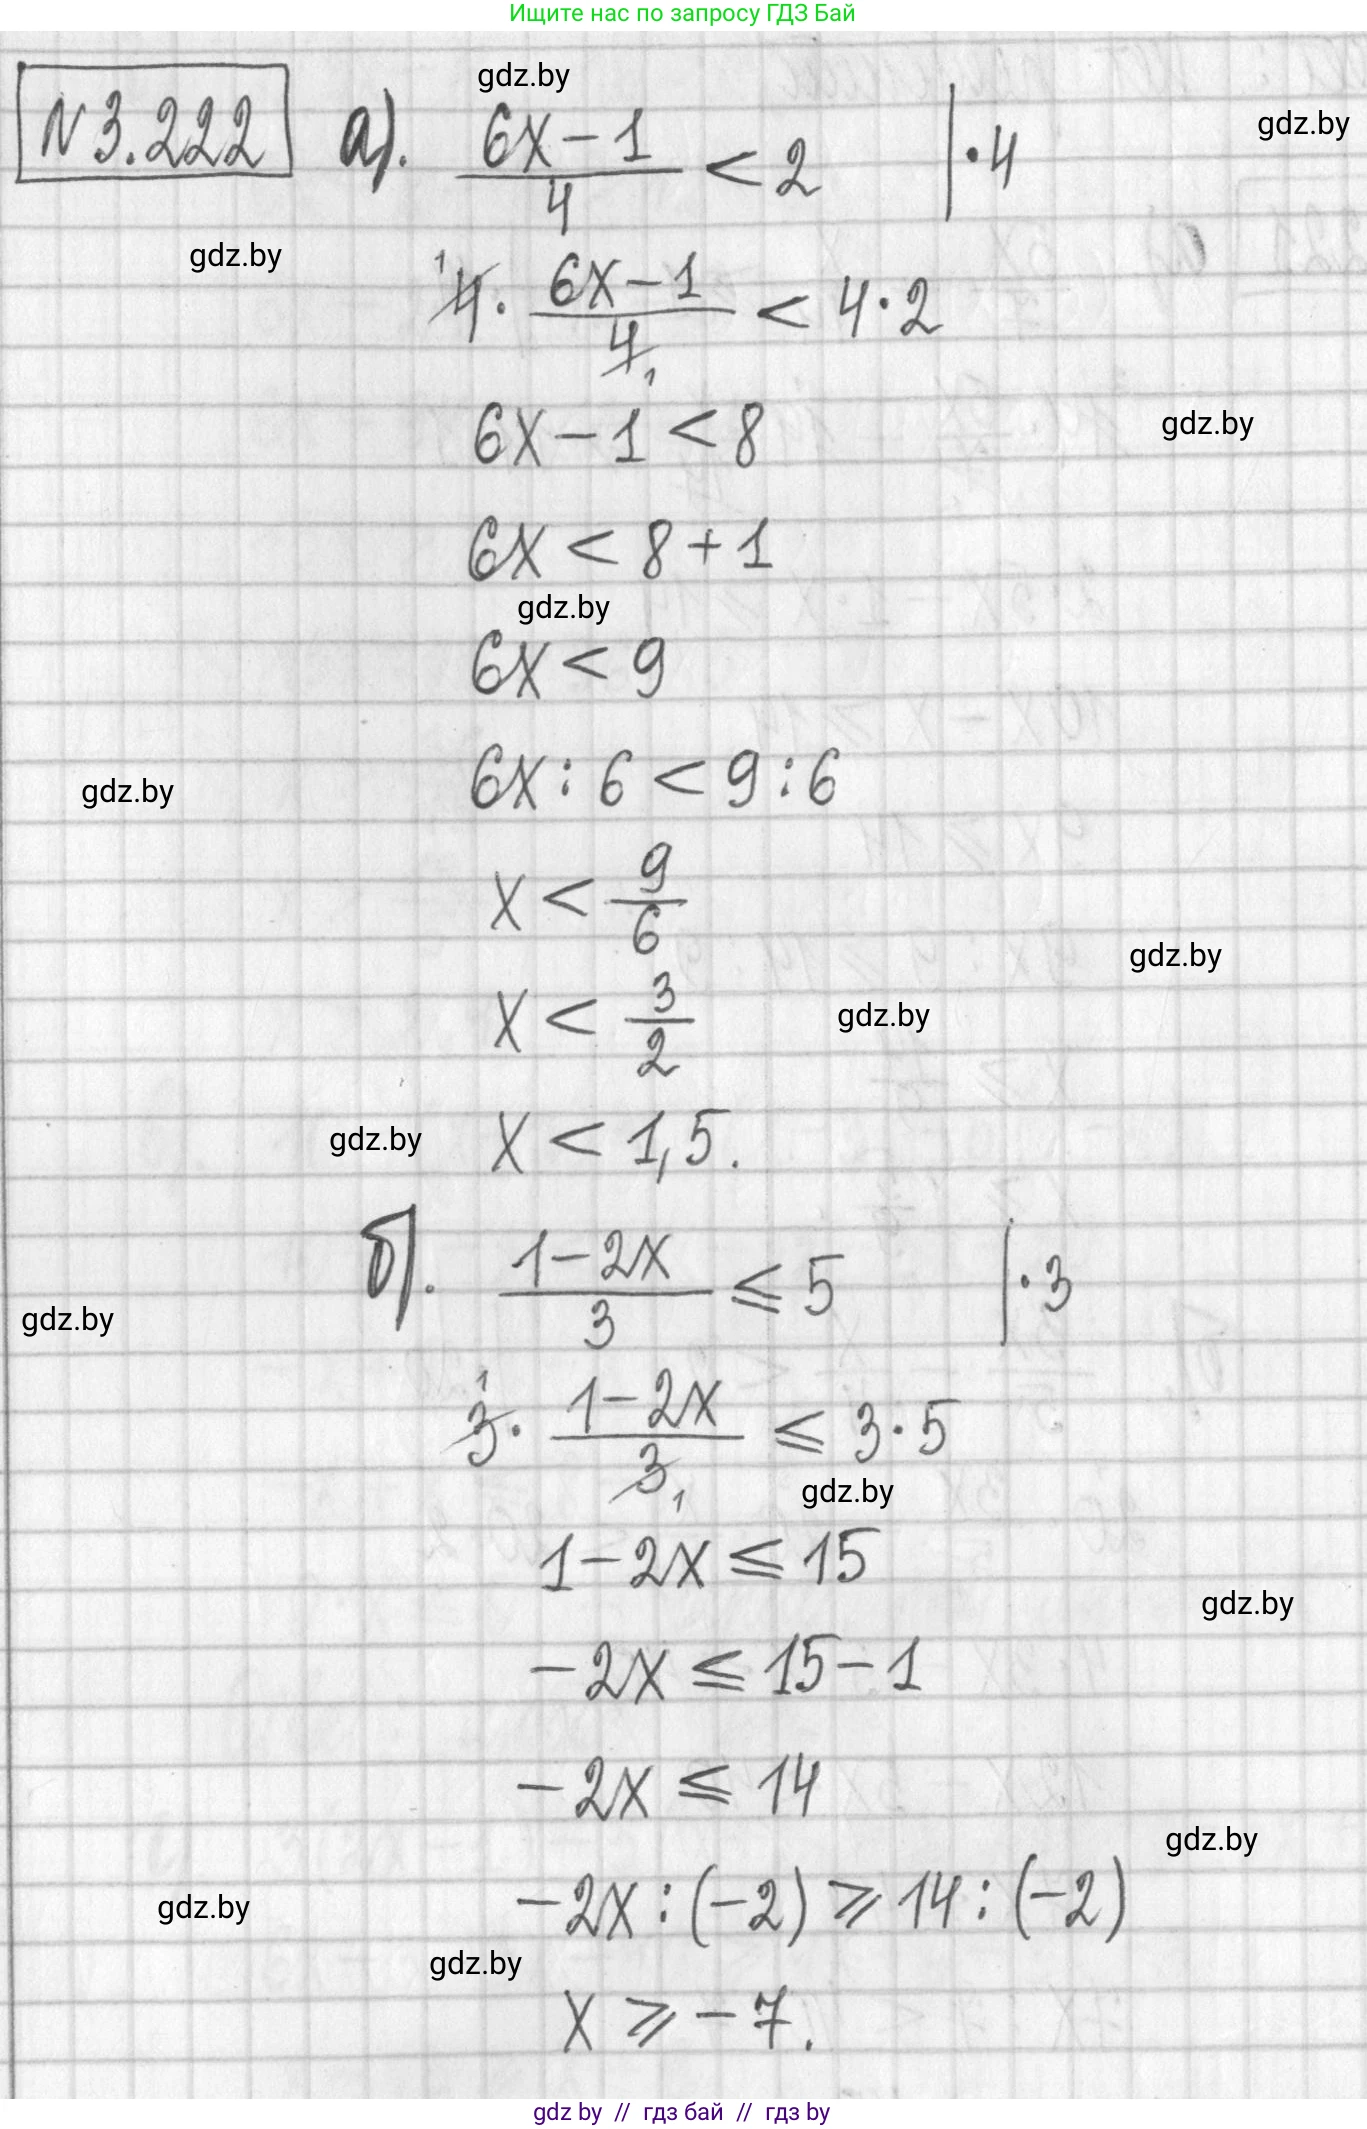 Ищите нас по запросу ГДЗ Бай
gdz.by
N 3.222 а). (6x-1)/4 < 2 | · 4
gdz.by
gdz.by
4 · (6x-1)/4 < 4 · 2
1 1
6x-1 < 8
gdz.by
6x < 8+1
gdz.by
6x < 9
6x : 6 < 9 : 6
gdz.by
x < 9/6
gdz.by
x < 3/2
gdz.by
x < 1,5.
gdz.by
б). (1-2x)/3 ≤ 5 | · 3
gdz.by
3 · (1-2x)/3 ≤ 3 · 5
1 1
gdz.by
1-2x ≤ 15
gdz.by
-2x ≤ 15-1
-2x ≤ 14
gdz.by
-2x : (-2) ⩾ 14 : (-2)
gdz.by
gdz.by
x ⩾ -7.
gdz by // гдз бай // гдз by